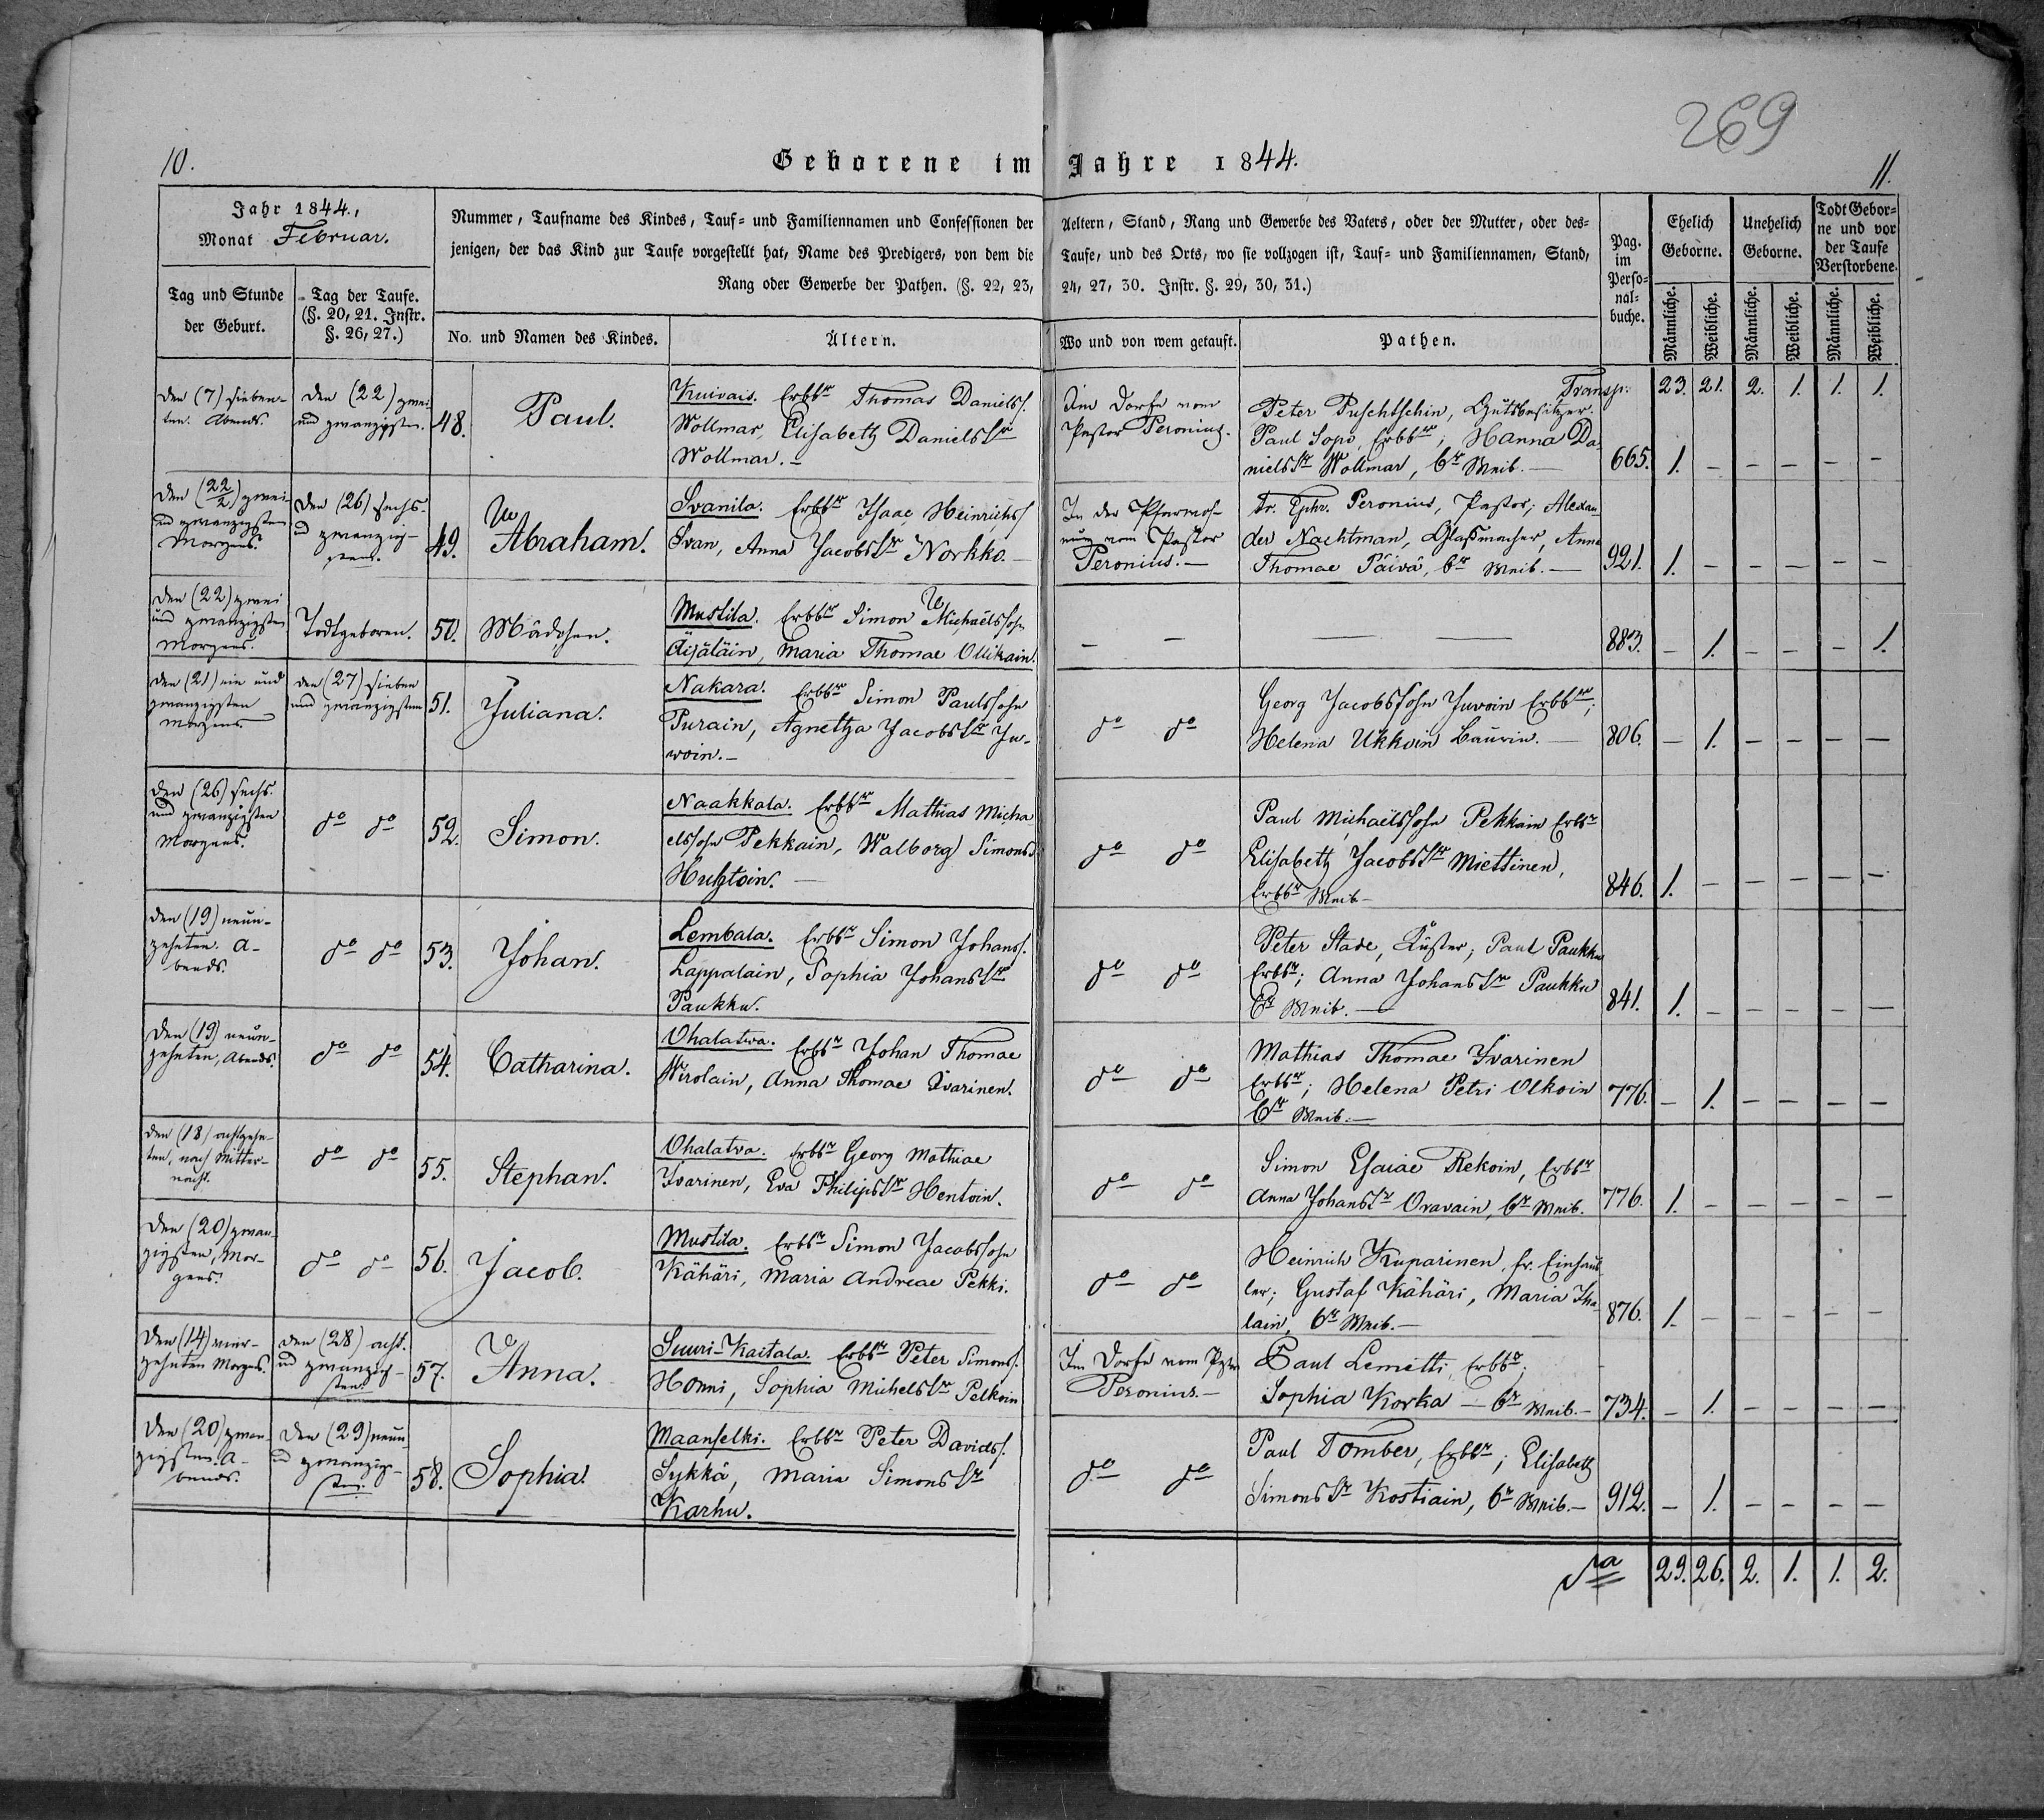 269
10.
Geborene im Jahre 1844.
11.
Jahr 1844.,
Monat Februar.
Tag und Stunde
der Geburt.
Tag der Taufe.
(§. 20, 21. Instr.
§. 26, 27.)
Nummer, Taufname des Kindes, Tauf- und Familiennamen und Confessionen der Aeltern, Stand, Rang und Gewerbe des Vaters, oder der Mutter, oder des-
jenigen, der das Kind zur Taufe vorgestellt hat, Name des Predigers, von dem die Taufe, und des Orts, wo sie vollzogen ist, Tauf- und Familiennamen, Stand,
Rang oder Gewerbe der Pathen. (§. 22, 23, 24, 27, 30. Instr. §. 29, 30, 31.)
No. und Namen des Kindes.
Ältern.
Wo und von wem getauft.
Pathen.
Pag.
im
Perso-
nal-
buche.
Ehelich
Geborne.
Unehelich
Geborne.
Todt Gebor-
ne und vor
der Taufe
Verstorbene.
Männliche.
Weibliche.
Männliche.
Weibliche.
Männliche.
Weibliche.
Transp: 23. 21. 2. 1. 1. 1.
Den (7) sieben-
ten. Abends.
Den (22) zwei
und zwanzigsten.
48.
Paul.
Kuivais. Erbbr Thomas Daniels.
Wollmar, Elisabeth Daniels tr
Wollmar. –
Im Dorfe vom
Pastor Peronius.
Peter Puschtschin, Gutsbesitzer.
Paul Sopo, Erbbr; Hanna Da-
niels tr Wollmar, br Weib. –
665. 1. – – – – –
Den (22/2) zwei-
und zwanzigsten
Morgens.
Den (26) sechs-
und zwanzig-
sten.
49.
Abraham.
Svanila. Erbbr Isaac Heinrichs
Svan, Anna Jacobs tr Norkko. –
In der Pfarrwoh-
nung vom Pastor
Peronius. –
Fr. Ephr. Peronius, Pastor; Alexan-
der Nachtman, Glaßmacher, Anna
Thomae Päivä, br Weib. –
921. 1. – – – – –
Den (22) zwei
und zwanzigsten
Morgens.
Todtgeboren.
50.
Mädchen.
Mustila. Erbbr Simon Michaëlssohn
Äijäläin, Maria Thomae Ollikain.
– – – –
883. – 1. – – – 1.
Den (21) ein und
zwanzigsten
Morgens.
Den (27) sieben
und zwanzigsten
51.
Juliana.
Nakara. Erbbr Simon Paulssohn
Purain, Agnetha Jacobs tr Ju-
woin. –
do do
Georg Jacobssohn Juvoin Erbbr;
Helena Ukkoin Bäurin. –
806. – 1. – – – –
Den (26) sechs-
und zwanzigsten
Morgens.
do do
52.
Simon.
Naakkala. Erbbr Mathias Micha-
elssohn Pekkain, Walborg Simons
Huhtoin. –
do do
Paul Michaëlssohn Pekkain Erbbr
Elisabeth Jacobs tr Miettinen,
Erbbr Weib –
846. 1. – – – – –
Den (19) neun-
zehnten. A-
bends.
do do
53.
Johan.
Lembala. Erbbr Simon Johans.
Lappalain, Sophia Johans tr
Paukku.
do do
Peter Stade, Küster; Paul Paukku
Erbbr; Anna Johans tr Paukku
br Weib. –
841. 1. – – – – –
Den (19) neun-
zehnten, Abends.
do do
54.
Catharina.
Ohalatwa. Erbbr Johan Thomae
Wirolain, Anna Thomae Ivarinen.
do do
Mathias Thomae Ivarinen
Erbbr; Helena Petri Olkoin
br Weib. –
776. – 1. – – – –
Den (18) achtzehn-
ten, nach Mitter-
nacht.
do do
55.
Stephan.
Ohalatva. Erbbr Georg Mathiae
Ivarinen, Eva Philips tr Hentoin.
do do
Simon Esaiae Rekoin, Erbbr
Anna Johans tr Oravain, br Weib.
776. 1. – – – – –
Den (20) zwan-
zigsten, Mor-
gens.
do do
56.
Jacob.
Mustila. Erbbr Simon Jacobssohn
Kähäri, Maria Andreae Pekki.
do do
Heinrich Kuparinen, fr. Einhäus-
ler; Gustaf Kähäri, Maria Iha-
lain, br Weib. –
876. 1. – – – – –
Den (14) vier-
zehnten Morgens.
Den (28) acht-
und zwanzig-
sten.
57.
Anna.
Suuri-Kaitala. Erbbr Peter Simons.
Honni, Sophia Michels tr Pelkoin
Im Dorfe vom Pastor
Peronius. –
Paul Lemetti, Erbbr;
Sophia Korka – br Weib. –
734. – 1. – – – –
Den (20) zwan-
zigsten. A-
bends.
Den (29) neun
und zwanzig-
sten.
58.
Sophia.
Maanselki. Erbbr Peter Davids.
Sykkä, Maria Simons tr
Karhu.
do do
Paul Tomber, Erbbr; Elisabeth
Simons tr Kostiain, br Weib. –
912. – 1. – – – –
Sa 29. 26. 2. 1. 1. 2.